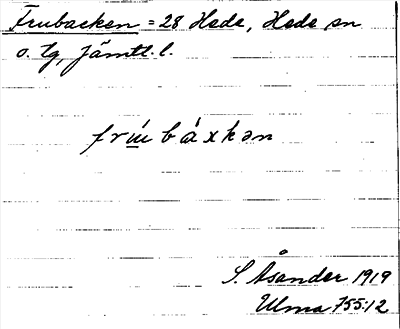 Frubacken = 28 Hede, Hede sn
o. tg, Jämtl. l.
frú̱bàxkən
S. Åsander 1919
Ulma 755:12